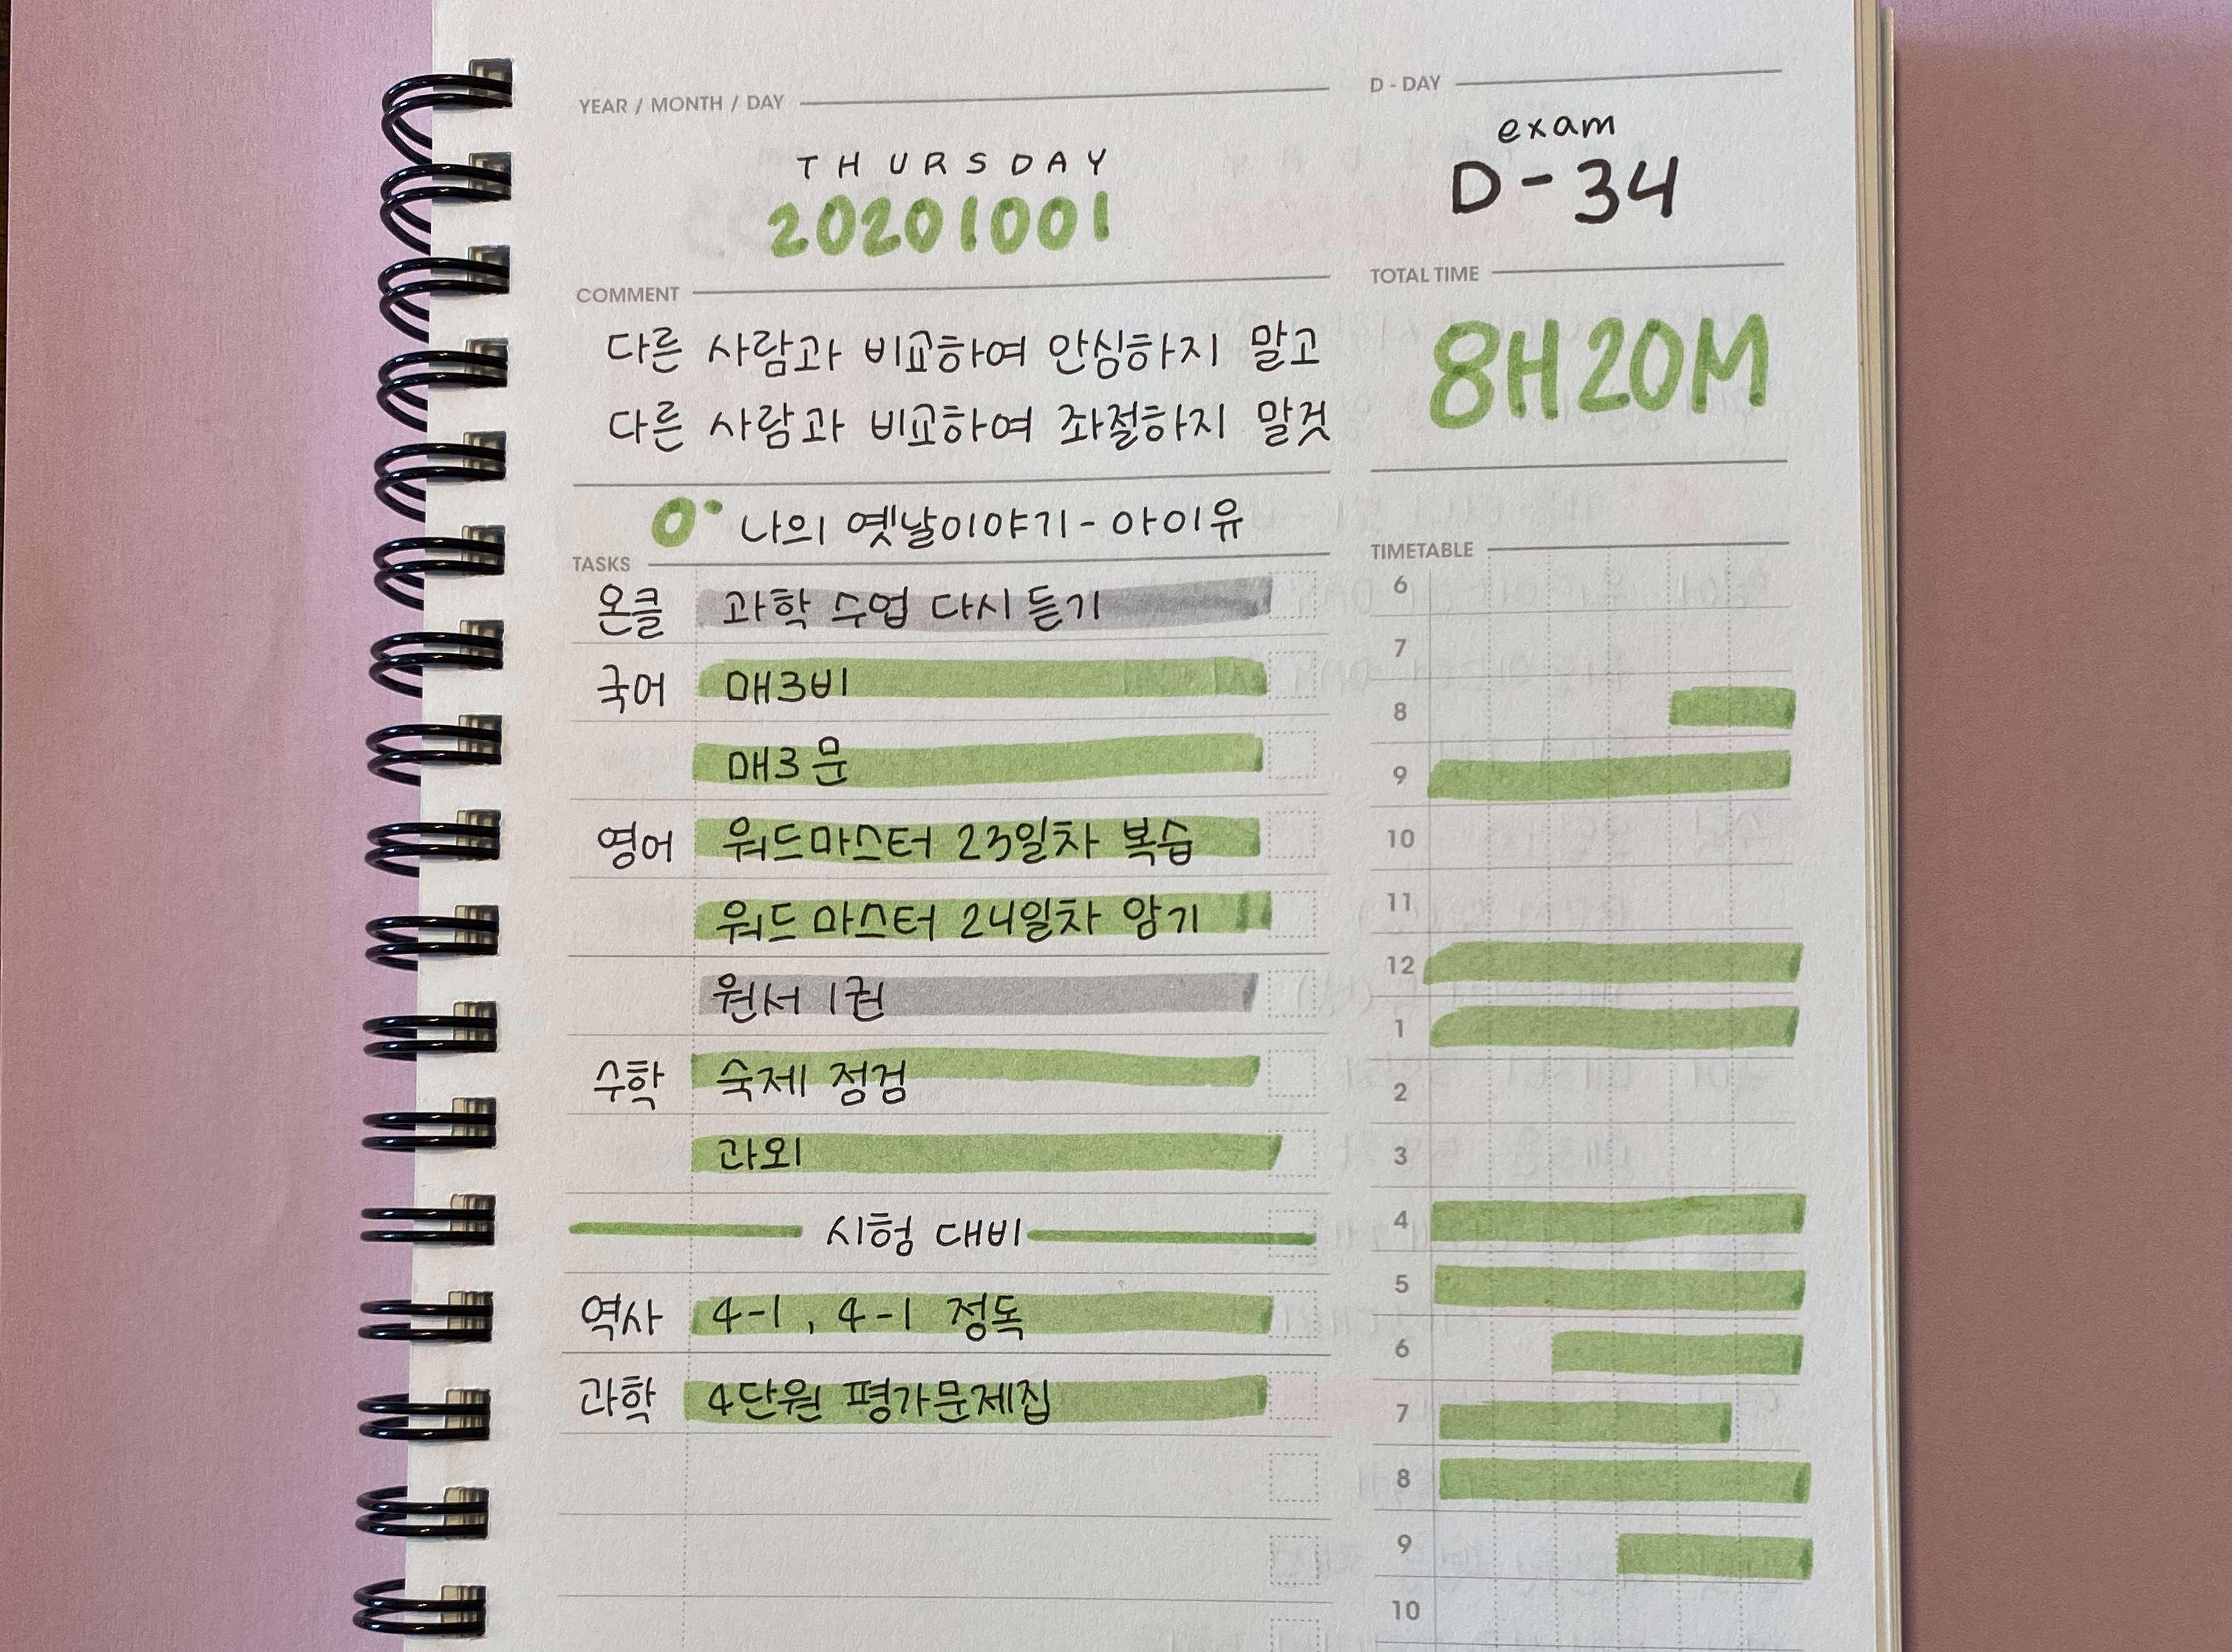 YEAR / MONTH / DAY
THURSDAY
20201001
D - DAY
exam
D-34
COMMENT
다른 사람과 비교하여 안심하지 말고
다른 사람과 비교하여 좌절하지 말것
TOTAL TIME
8H 20M
나의 옛날이야기 - 아이유
TASKS
온클 과학 수업 다시 듣기
국어 매3비
매3문
영어 워드마스터 23일차 복습
워드마스터 24일차 암기
원서 1권
수학 숙제 점검
과외
시험 대비
역사 4-1, 4-1 정독
과학 4단원 평가문제집
TIMETABLE
6
7
8
9
10
11
12
1
2
3
4
5
6
7
8
9
10